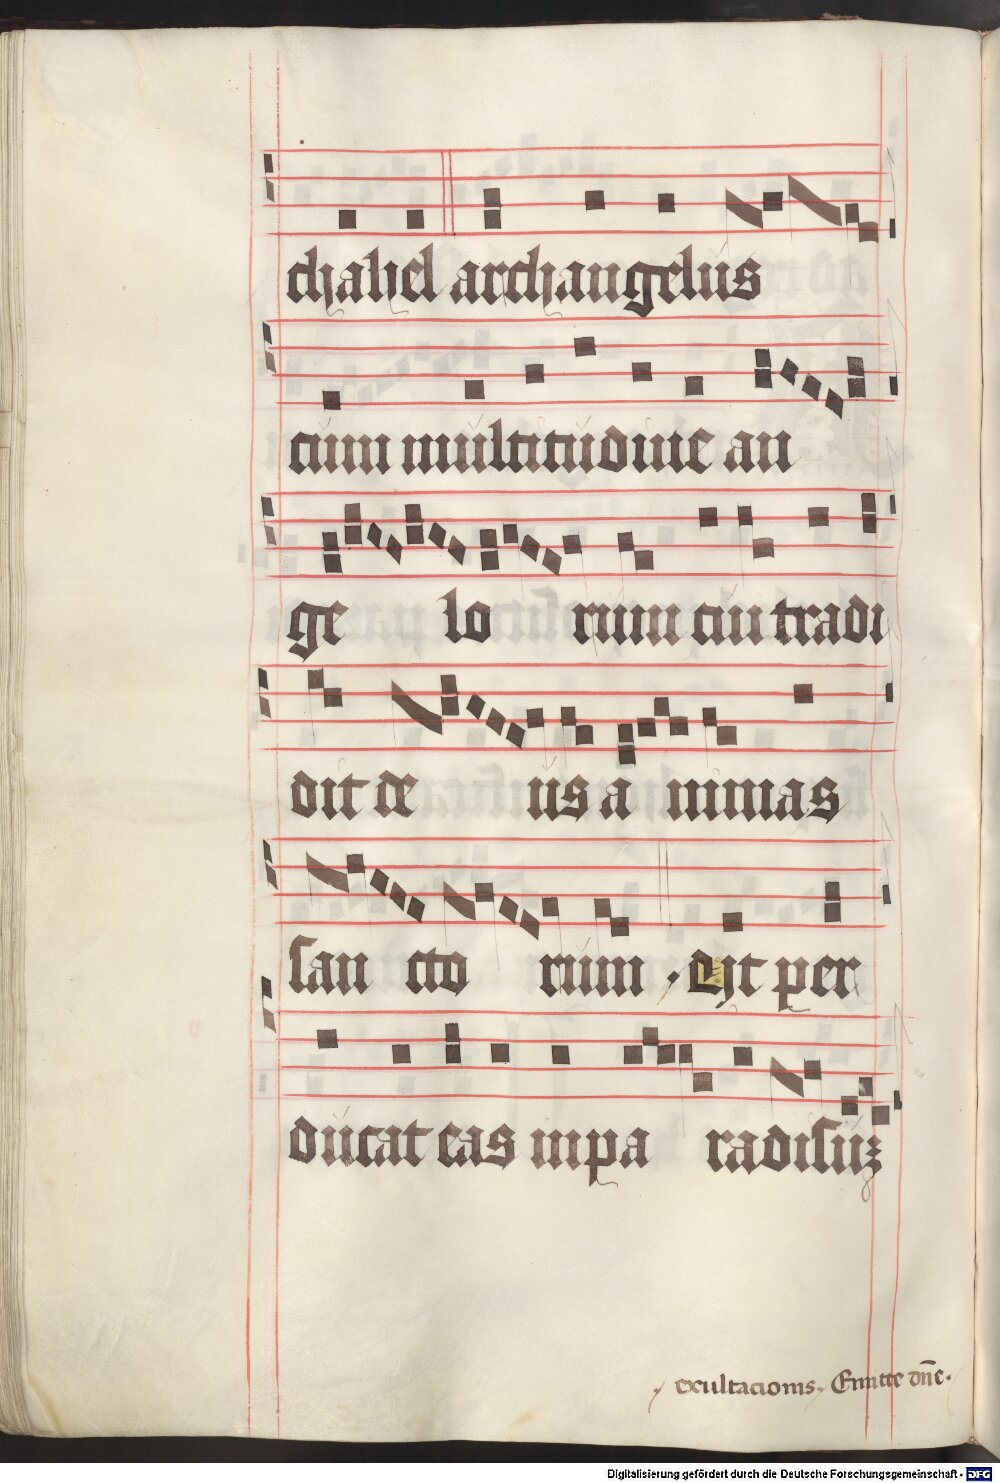 chahel archangelus
cum multitudine an
ge lo rum cui tradi
dit de us a nimas
san cto rum . Vt per
ducat eas in pa radisuz
exultacionis. Emitte dn̄e.
Digitalisierung gefördert durch die Deutsche Forschungsgemeinschaft - DFG